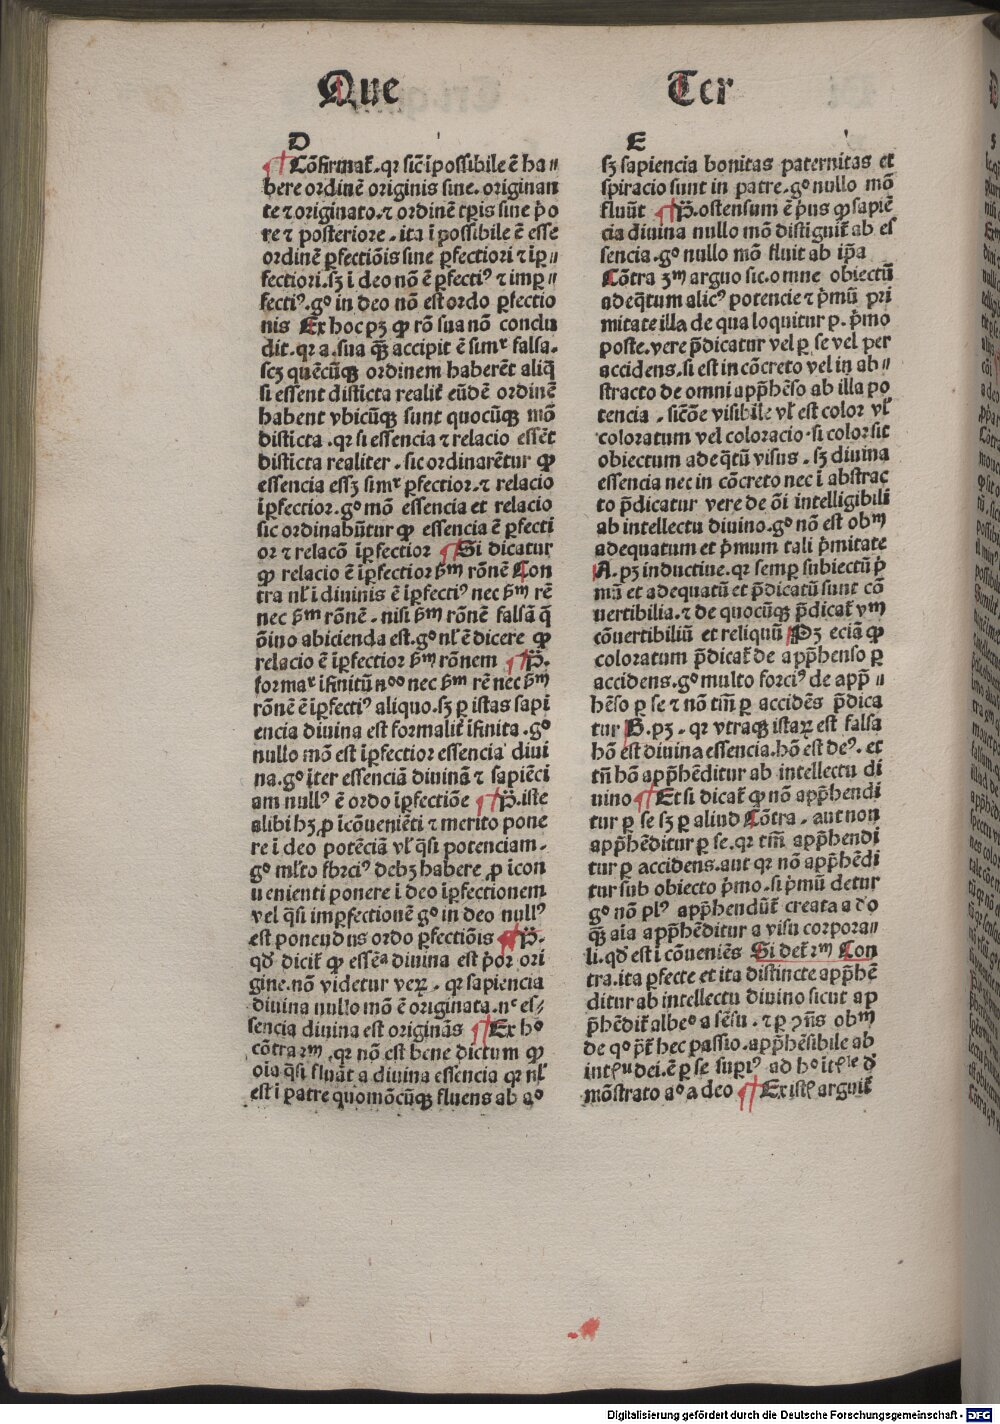 Que
Ter
D
¶ Cōfirmat̄. qr sic̄ īpossibile ē ha⸗
bere ordinē originis sine. originan
te ⁊ originato. ⁊ ordinē tꝑis sine p̄o
re ⁊ posteriore. ita ī possibile ē esse
ordinē ꝑfectiōis sine ꝑfectiori ⁊ īꝑ⸗
fectiori. sꝫ ī deo nō ē ꝑfectiꝰ ⁊ imꝑ⸗
fectiꝰ. gᵒ in deo nō est ordo ꝑfectio
nis Ex hoc pꝫ ꝙ rō sua nō conclu
dit. qr a. sua qꝫ̄ accipit ē simʳ falsa.
scꝫ quēcūqꝫ ordinem haberēt aliq̄
si essent disticta realit̄ eūdē ordinē
habent vbicūqꝫ sunt quocūqꝫ mō
disticta. qr si essencia ⁊ relacio essēt
disticta realiter. sic ordinarētur ꝙ
essencia essꝫ simʳ ꝑfectior. ⁊ relacio
īꝑfectior. gᵒ mō essencia et relacio
sic ordinabūtur ꝙ essencia ē ꝑfecti
or ⁊ relacō īꝑfectior ¶ Si dicatur
ꝙ relacio ē īꝑfectior ẜm rōnē Con
tra nł ī diuinis ē īꝑfectiꝰ nec ẜm rē
nec ẜm rōnē. nisi ẜm rōnē falsā q̄
ōino abicienda est. gᵒ nł ē dicere ꝙ
relacio ē īꝑfectior ẜm rōnem ¶ P̄.
formaʳ īfinitū nᵒᵒ nec ẜm rē nec ẜm
rōnē ē īꝑfectiꝰ aliquo. sꝫ ꝑ istas sapi
encia diuina est formalit̄ īfinita. gᵒ
nullo mō est īꝑfectior essencia diui
na. gᵒ īter essenciā diuinā ⁊ sapiēci
am nullꝰ ē ordo īꝑfectiōe ¶ P̄. iste
alibi hꝫ ꝓ icōueniēti ⁊ merito pone
re ī deo potēciā vł q̄si potenciam.
gᵒ młto forciꝰ debꝫ habere ꝓ icon
uenienti ponere ī deo īꝑfectionem
vel q̄si imꝑfectionē gᵒ in deo nullꝰ
est ponendus ordo ꝑfectiōis ¶ P̄.
qđ dicit̄ ꝙ essēᵃ diuina est p̄or ori
gine. nō videtur veꝝ. qr sapiencia
diuina nullo mō ē originata. nᶜ es⸗
sencia diuina est originās ¶ Ex hᵒ
cōtra ᵐ. qr nō est bene dictum ꝙ
oīa q̄si fluāt a diuina essencia qr nł
est ī patre quomōcūqꝫ fluens ab aᵒ
E
sꝫ sapiencia bonitas paternitas et
spiracio sunt in patre. gᵒ nullo mō
fluūt ¶ P̄. ostensum ē p̄us ꝙ sapiē
cia diuina nullo mō distiguit̄ ab es
sencia. gᵒ nullo mō fluit ab ip̄a
Cōtra 3ᵐ arguo sic. omne obiectū
adeq̄tum alicꝰ potencie ⁊ p̄mū pri
mitate illa de qua loquitur p. p̄mo
poste. vere p̄dicatur vel ꝑ se vel per
accidens. si est in cōcreto vel in ab⸗
stracto de omni app̄hēso ab illa po
tencia. sic̄ōe visibile vł est color vł
coloratum vel coloracio. si color sit
obiectum adeq̄tū visus. sꝫ diuina
essencia nec in cōcreto nec ī abstrac
to p̄dicatur vere de ōi intelligibili
ab intellectu diuino. gᵒ nō est obᵐ
adequatum et p̄mum tali p̄mitate
A. pꝫ inductiue. qr semꝑ subiectū p̄
mū et adequatū et p̄dicatū sunt cō
uertibilia. ⁊ de quocūqꝫ p̄dicat̄ vᵐ
cōuertibiliū et reliquū Pꝫ eciā ꝙ
coloratum p̄dicat̄ de app̄henso ꝑ
accidens. gᵒ multo forciꝰ de app̄⸗
hēso ꝑ se ⁊ nō tm̄ ꝑ accidēs p̄dica
tur B. pꝫ. qr vtraqꝫ istaꝝ est falsa
hō est diuina essencia. hō est deꝰ. et
tn̄ hō app̄hēditur ab intellectu di
uino ¶ Et si dicat̄ ꝙ nō app̄hendi
tur ꝑ se sꝫ ꝑ aliud Cōtra. aut non
app̄hēditur ꝑ se. qr tm̄ app̄hendi
tur ꝑ accidens. aut qr nō app̄hēdi
tur sub obiecto p̄mo. si p̄mū detur
gᵒ nō plꝰ app̄hendūt̄ creata a dō
qꝫ̄ aīa app̄hēditur a visu corpora⸗
li. qđ est ī cōueniēs Si det̄ ᵐ Con
tra. ita ꝑfecte et ita distincte app̄hē
ditur ab intellectu diuino sicut ap
p̄hēdit̄ albeᵒ a sēsu. ⁊ ꝑ ꝯn̄s obᵐ
de qᵒ p̄t̄ hec ꝑassio. app̄hēsibile ab
mōstrato aᵒ a deo ¶ Ex istꝭ arguit̄